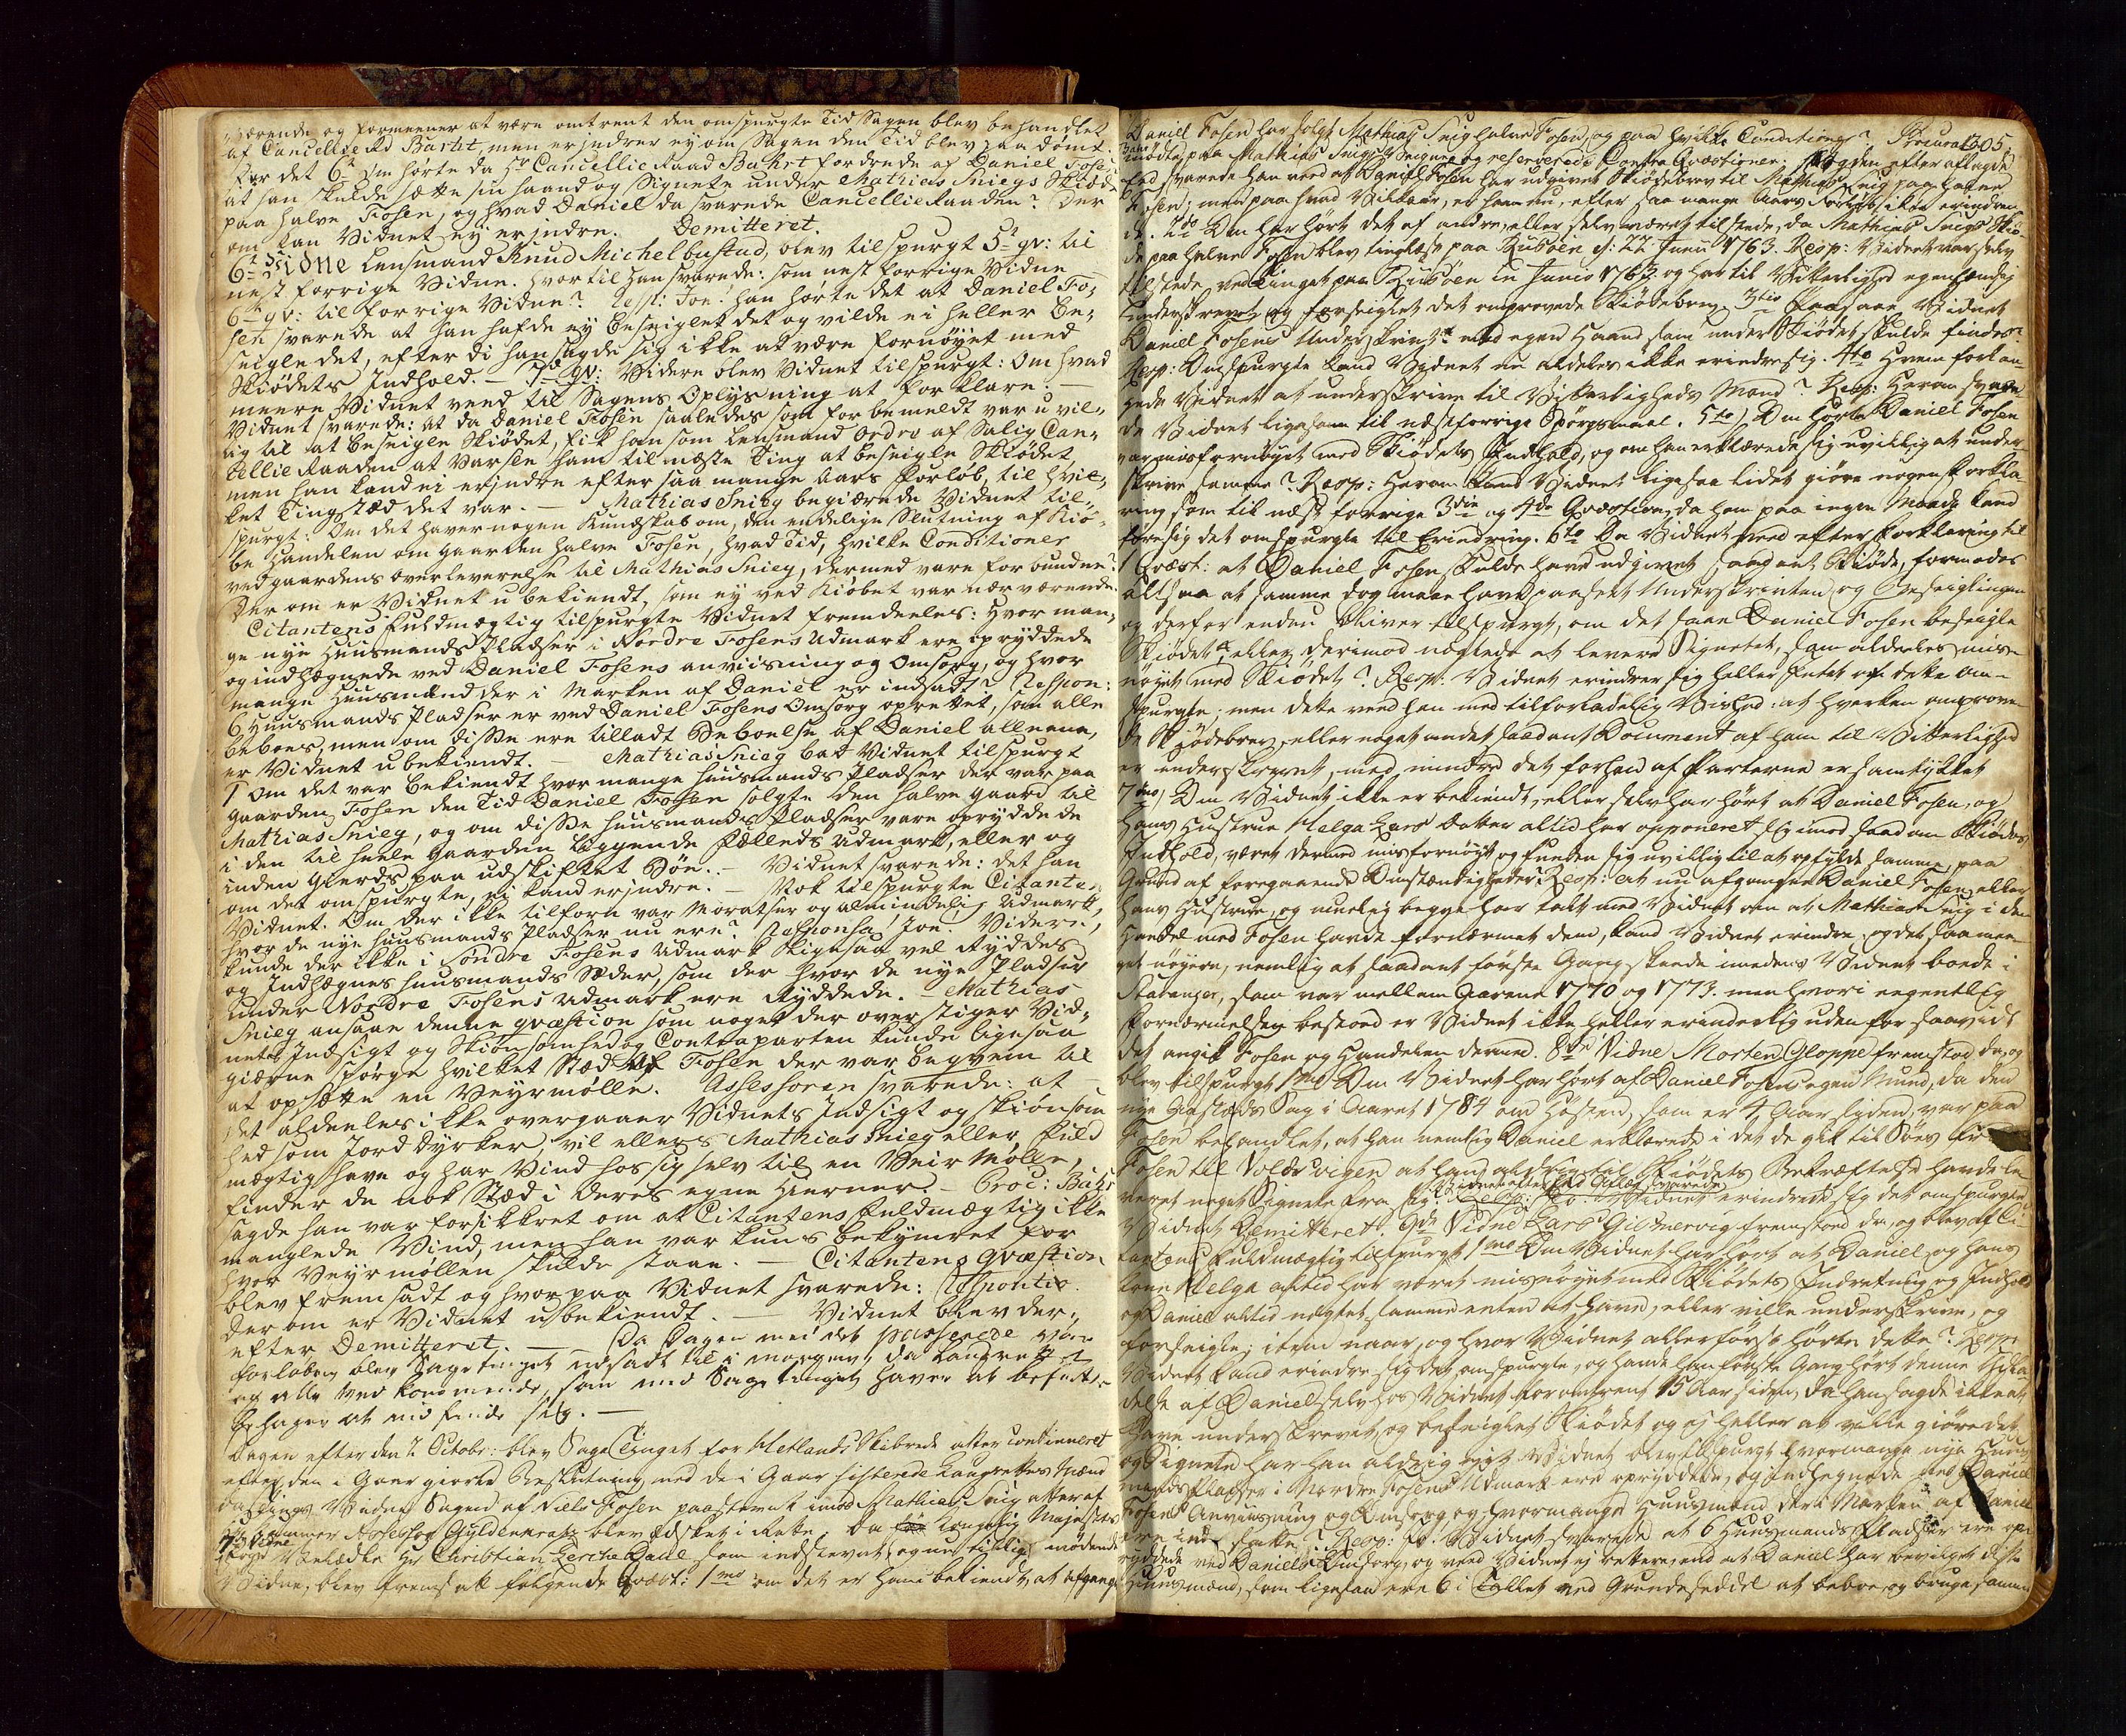 værende og formeener at være omtrent den omspurgte Tid Sagen blev behandlet
af Cancellie Rd Bartet, men erjndrer ey om Sagen den Tid blev paa dømt.
for det 6te Om hørte da Hr Cancellie Raad Bahrt fordrede af Daniel Fosen
at han skulde sætte sin haand og Signete under Mathias Sniegs Skiøde
paa halve Fosen, og hvad Daniel da svarede Cancellie Raaden? Der
om kan Vidnet ey erjndre. Demitteret.
6te Vidne Lensmand Knud Michelbustad, blev tilspurgt 5te qv: til
nest forrige Vidne. hvortil han svarede: som nest forrige Vidne
6te qv: til forrige Vidne? Resp: Joe! han hørte det at Daniel Fo-
sen svarede at han hafde ey beseiglet det og vilde ei heller be-
seigle det, efterdi han sagde sig ikke at være fornøyet med
Skiødets Indhold. — 7de qv: Videre blev Vidnet tilspurgt: Om hvad
meere Vidnet veed til Sagens Oplysning at forklare. —
Vidnet svarede: at da Daniel Fosen saaledes som forbemeldt var u vil-
lig til at beseigle Skiødet, fik han som Lensmand Ordre af Salig Can-
cellie Raaden at Varsle ham til næste Ting at beseigle Skiødet
men han kand ei erjndre efter saa mange Aars Forløb, til hvil-
ket Tingstæd det var. — Mathias Snieg begiærede Vidnet til-
spurgt: Om det haver nogen Kundskab om, den endelige Slutning af Kiø-
be Handelen om gaarden halve Fosen, hvad Tid, hvilke Conditioner
ved gaardens overleverelse til Mathias Snieg, dermed vare forbundne?
Der om er Vidnet u bekiendt, som ey ved Kiøbet var nærværende.
Citantens Fuldmægtig tilspurgte Vidnet fremdeeles: Hvor man-
ge nye Huusmands Pladser i Nordre Fosens Udmark ere oprÿddede
og indhægnede ved Daniel Fosens anviisning og Omsorg, og hvor
mange Huusmænd der i Marken af Daniel er indsadt? Respon:
6 Huusmands Pladser er ved Daniel Fosens Omsorg oprettet, som alle
beboes, men om disse ere tilladt Beboelse af Daniel alleene,
er Vidnet ubekiendt. — Mathias Snieg bad Vidnet tilspurgt
1 Om det var bekiendt hvor mange huusmands Pladser der var paa
Gaarden Fosen den Tid Daniel Fosen solgte den halve Gaard til
Mathias Snieg, og om disse huusmands Pladser vare oprÿddede
i den til heele Gaarden liggende Fælleds Udmark, eller og
inden Gierds paa udskiftet Bøe. — Vidnet svarede: det han
om det omspurgte, ei kand erjndre. — Nok tilspurgte Citanten
Vidnet. Om der ikke tilforn var Moratser og almindelig Udmark,
hvor de nye huusmands Pladser nu ere? Responsa! Joe. Videre,
kunde der ikke i Søndre Fosens Udmark ligesaa vel Rÿddes
og Indhægnes huusmands Sæder, som der hvor de nye Pladser
under Nordre Fosens Udmark ere Rÿddede. — Mathias
Snieg ansaae denne qvæstion som noget der overstiger Vid-
nets Indsigt og Skiønsomhed og Contraparten kunde ligesaa
giærne spørge hvilket Stæd af Fosen der var beqvem til
at opsætte en Veyrmølle. Assessoren svarede: at —
det aldeeles ikke overgaaer Vidnets Indsigt og skiønsom
hed som Jord Dÿrker, vil ellers Mathias Snieg eller Fuld
mægtig have og har Vind hos sig selv til en Veir Mølle,
finder de nok Stæd i deres egne Hierner — Proc: Bahr
sagde han var forsikkret om at Citantens Fuldmægtig ikke
manglede Vind, men han var kuns bekÿmret for
hvor Veyrmøllen skulde staae. — Citantens Qvæstion
blev fremsadt og hvorpaa Vidnet svarede: Respontio
Der om er Vidnet ubekiendt. — Vidnet blev der-
efter Demitteret. — Da Dagen med det passerede var
forløben blev Sagetinget udsadt til i morgen, da Laugrettet
og alle vedkommende, som med Sagetinget haver at befatte
behager at indfinde sig. —
Dagen efter den 7 Octobr: blev Sage Tinget for Hetlands Skibrede atter continueret
efter den i Gaar giorte Beslutning med de i Gaar sistende Laugrettes Mænd
da Tings Vidne Sagen af Niels Fosen paastevnt imod Mathias Snieg atter af
Hr Kammer Assessor Gyldenkrantz blev Æsket i Rette. Da Kongelig Majestets
7de Vidne
Foged Velædle Hr Christian Lerche Dahl som indstevnt og nu tillige mødende
Vidne, blev fremsatt følgende Qvæst: 1mo om det er ham bekiendt, at Afgangne
305.
Daniel Fosen har solgt Mathias Snieg halve Fosen, og paa hvilke Conditioner? Procurat:
Bahr
mødte paa Mathias Sniegs Veigne og reserverede Contra Qvæstioner. Fogden efter aflagde
Eed svarede han veed at Daniel Fosen har udgivet Skiødebrev til Mathias Snieg paa halve
Fosen; men paa hvad Vilkaar, er ham nu, efter saa mange Aars Forløb, ikke erindren-
de. 2do Om har hørt det af andre, eller selv været tilstede, da Mathias Sniegs Skiø-
de paa halve Fosen blev tinglæst paa Riisøen d: 22 Junii 1763. Resp: Vidnet var selv
tilstede ved Tinget paa Riisøen in Junio 1763. og har til Vitterlighed egenhændig
underskrevet og forseiglet det omprovede Skiødebrev. 3tio Saae Vidnet
Daniel Fosens Underskrift med egen Haand som under Skiødet skulde findes?
Resp: Omspurgte kand Vidnet nu aldeles ikke erindre sig. 4to Hvem forlan-
gede Vidnet at underskrive til Vitterligheds Mand? Resp: Herom svare-
de Vidnet ligesom til næstforrige Spørgsmaal. 5to) Om hørte Daniel Fosen
var misfornøyet med Skiødets Indhold, og om han erklærede sig uvillig at under-
skrive samme? Resp: Herom kand Vidnet ligesaa lidet giøre nogen Forkla-
ring som til næst forrige 3die og 4de Qvæstion, da han paa ingen Maade kand
føre sig det omspurgte til Erindring. 6to Da Vidnet veed efter Forklaring til
1 Qvæst: at Daniel Fosen skulde have udgivet saadant Skiøde, formodes
altsaa at samme dog maae have paaseet Underskriften og Beseiglingen
og derfor endnu bliver tilspurgt, om det saae Daniel Fosen beseigle
Skiødet, eller derimod nægtede at levere Signetet, som aldeles mis-
nøyet med Skiødet? Resp: Vidnet erindrer sig heller Intet af dette om-
spurgte; men dette veed han med tilforladelig Vished: at hverken omprove-
de Skjødebrev, eller noget andet saadant Document af ham til Vitterlighed
er underskrevet, med mindre det forhen af Parterne er samtykket
7mo) Om Vidnet ikke er bekiendt, eller selv har hørt at Daniel Fosen, og
hans Hustrue Helga Lars Datter altid har opponeret sig imod saadan Skiødes
Indhold, været dermed misfornøyet og funden sig uvillig til at opfylde samme, paa
Grund af foregaaende Omstændigheder. Resp: at nu afgangne Daniel Fosen eller
hans Hustrue, og muelig begge har talt med Vidnet om at Mathias Snieg i den
Handel med Fosen havde fornærmet dem, kand Vidnet erindre, og det saa mee-
get nøyere, nemlig at saadant første Gang skeede imedens Vidnet boede i
Stavanger, som var mellem Aarene 1770 og 1773. men hvori egentlig
Fornærmelsen bestoed er Vidnet ikke heller erinderlig uden for saavidt
det angik Fosen og Handelen derom. 8de Vidne Morten Gloppe fremstod da, og
blev tilspurgt 1mo Om Vidnet har hørt af Daniel Fosens egen Mund, da den
nye Aastæds Sag i Aaret 1784 om Høsten, som er 4 Aar siden, var paa
Fosen behandlet, at han nemlig Daniel erklærede i det de gik til Søes fra
Fosen til Voldsvigen at han aldrig til Skiødets Bekræftelse havde le-
Vidnet efter Eed aflæg svarede
veret noget Signete fra sig? Resp: Jo. Vidnet erindrede sig det omspurgte
Vidnet Demitteret. 9de Vidne Lars Giusnervig fremstoed da, og blev af Ci-
tantens Fuldmægtig tilspurgt 1mo Om Vidnet har hørt at Daniel og hans
Kone Helga altid har været misnøyet med Skiødets Indretning og Indhold
og Daniel altid nægtet samme enten at have, eller ville underskrive, og
forseigle; item naar, og hvor Vidnet allerførst hørte dette? Resp:
Vidnet kand erindre sig det omspurgte, og havde han første Gang hørt denne
delse af Daniel selv hos Vidnet for omtrent 15 Aar siden, da han sagde ikke at
have underskrevet og beseiglet Skiødet og ej heller at ville giøre det
og Signete har han aldrig eyet Vidnet blev tilspurgt hvormange nye Huus-
mands Pladser i Nordre Fosens Udmark ere opryddede, og Indhegnede ved Daniel
Fosens Anviisning og Omsorg og hvormange Huusmænd der i Marken af Daniel
ere ind satte? Resp: Jo. Vidnet svarede at 6 Huusmands Pladser ere op-
ryddede ved Daniels Omsorg, og veed Vidnet ej rettere, end at Daniel har bevilget disse
Huusmænd, som ligesaa ere 6 i Tallet ved Grundeseddel at beboe og bruge samme